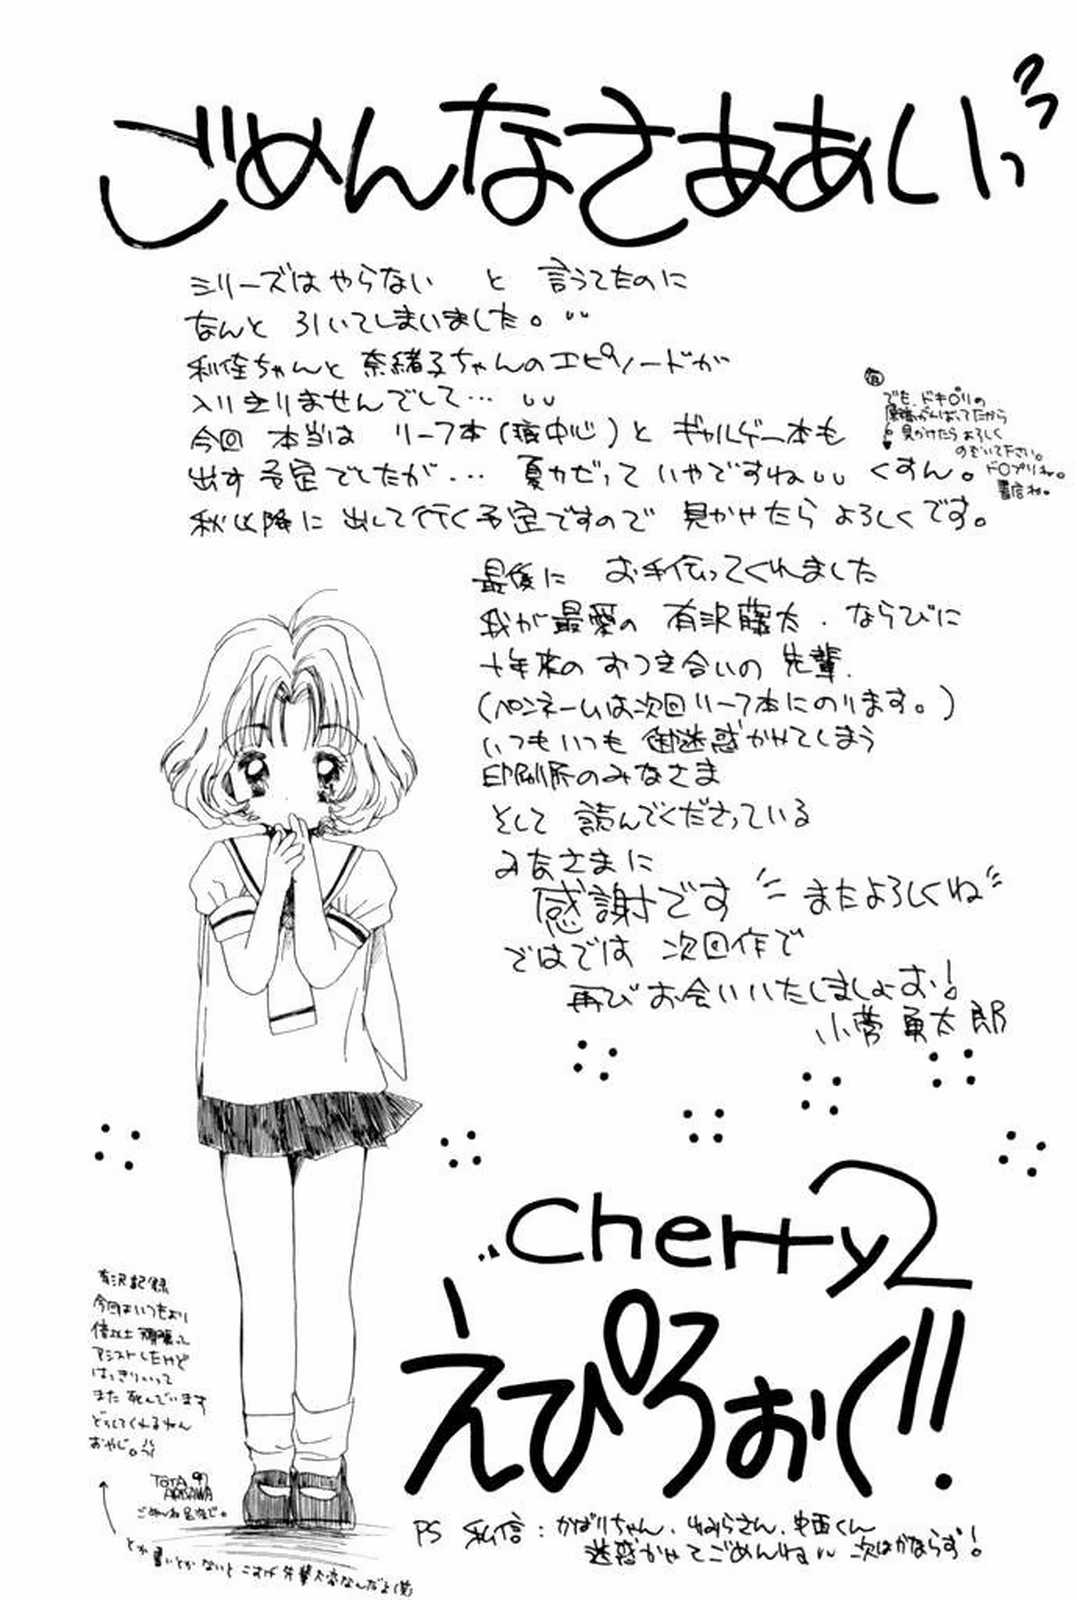 ごめんなさぁあいっ
シリーズはやらない と 言うてたのに
なんと 引いてしまいました。
利佳ちゃんと奈緒子ちゃんのエピソードが
入りきりませんでして…
今回 本当は リーフ本(痕中心)と ギャルゲー本も
出す予定でしたが… 夏カゼっていやですね くすん。
秋以降に出して行く予定ですので 見かけたらよろしくです。
でも、ドキプリの
原稿がんばってたから
見かけたらよろしく
のぞいて下さい。
ドキプリね。
書店ね。
最後に お手伝ってくれました
我が最愛の 有沢藤太. ならびに
十年来の おつき合いの 先輩.
(ペンネームは次回リーフ本にのります。)
いつもいつも 御迷惑かけてしまう
印刷所のみなさま
そして 読んでくださっている
みなさまに
感謝です またよろしくね
ではでは 次回作で
再びお会いいたしましょお!
小菅勇太郎
Cherry2
えぴろぉく!!
有沢記録
今回はいつもより
倍以上頑張って
アシストしたけど
はっきりいって
また死んでいます
どうしてくれるねん
おやじ。
TOTA 97
ARISAWA
ごめんね
とか書いとかないと こすげ先輩大変なんだよ(笑)
PS 私信:かばりちゃん、ゆみらさん、中西くん
迷惑かけてごめんね 次はかならず!